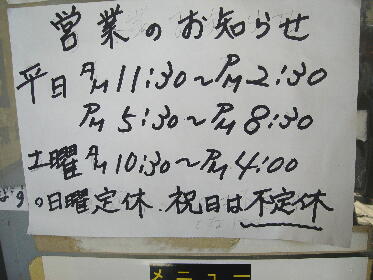 営業のお知らせ
平日 AM11:30〜PM2:30
PM5:30〜PM8:30
土曜 AM10:30〜PM4:00
日曜定休.祝日は不定休
メニュー